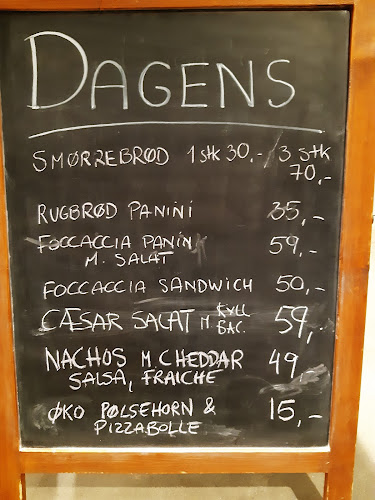 DAGENS
SMØRREBRØD 1 stk 30,- / 3 stk
70,-
RUGBRØD PANINI 35,-
FOCCACCIA PANINI 59,-
M. SALAT
FOCCACCIA SANDWICH 50,-
CÆSAR SALAT M. KYLL 59,-
BAC.
NACHOS M. CHEDDAR 49,
SALSA, FRAICHE
ØKO PØLSEHORN & 15,-
PIZZABOLLE